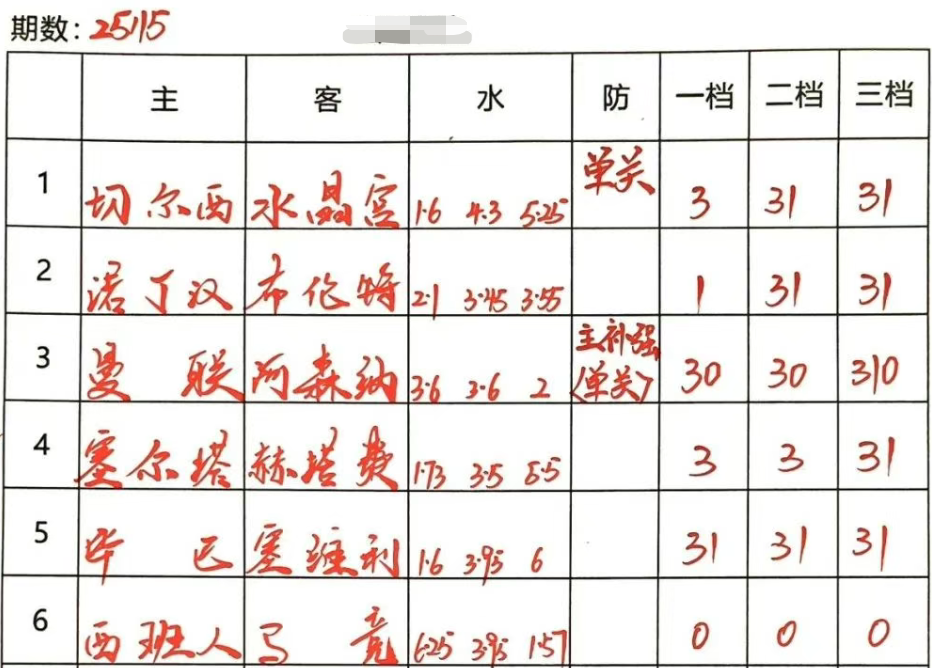 期数: 25115
主 客 水 防 一档 二档 三档
1 切尔西 水晶宫 1.6 4.3 5.25 单关 3 31 31
2 诺丁汉 布伦特 2.1 3.45 3.55 1 31 31
3 曼联 阿森纳 3.6 3.6 2 主补强 (单关) 30 30 310
4 塞尔塔 赫塔费 1.73 3.5 5.5 3 3 31
5 毕巴 塞维利 1.6 3.95 6 31 31 31
6 西班人 马竞 6.25 3.95 1.57 0 0 0